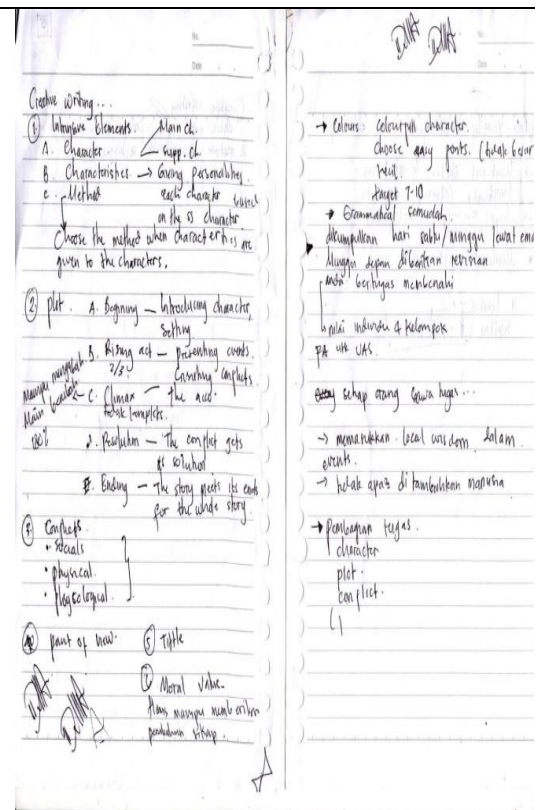 No.
Date
Creative Writing...
① Intrinsic Elements.
Main ch.
A. Character
supp. ch.
B. Characteristics → Giving personalities
c. Method each character based
on the character
Choose the method when characteristics are
given to the characters.
② plot. A. Beginning — Introducing character,
setting
B. Rising act — presenting events.
2/3
conflicts
C. Climax — the
tidak komplets.
d. Resolution — The conflict gets
its solution
E. Ending — The story meets its ends
for the whole story.
③ Conflicts.
• socials
• physical.
• Physcological.
④ point of view.
⑤ Tittle
⑦ Moral Value.
Harus mampu memberikan
perubahan sikap.
No.
Date
→ Colours: Colourfull character.
Choose easy fonts. (tidak besar
kecil.
target 7-10
→ Grammatical semudah.
dikumpulkan hari sabtu/minggu lewat ema
Minggu depan diberikan revisian
bertugas membenahi
nilai individu & kelompok
PA utk UAS.
setiap orang bawa tugas...
→ memasukkan local wisdom dalam
events.
→ tidak apa2 ditambahkan manusia
→ Pembagian tugas.
character
plot.
conflict.